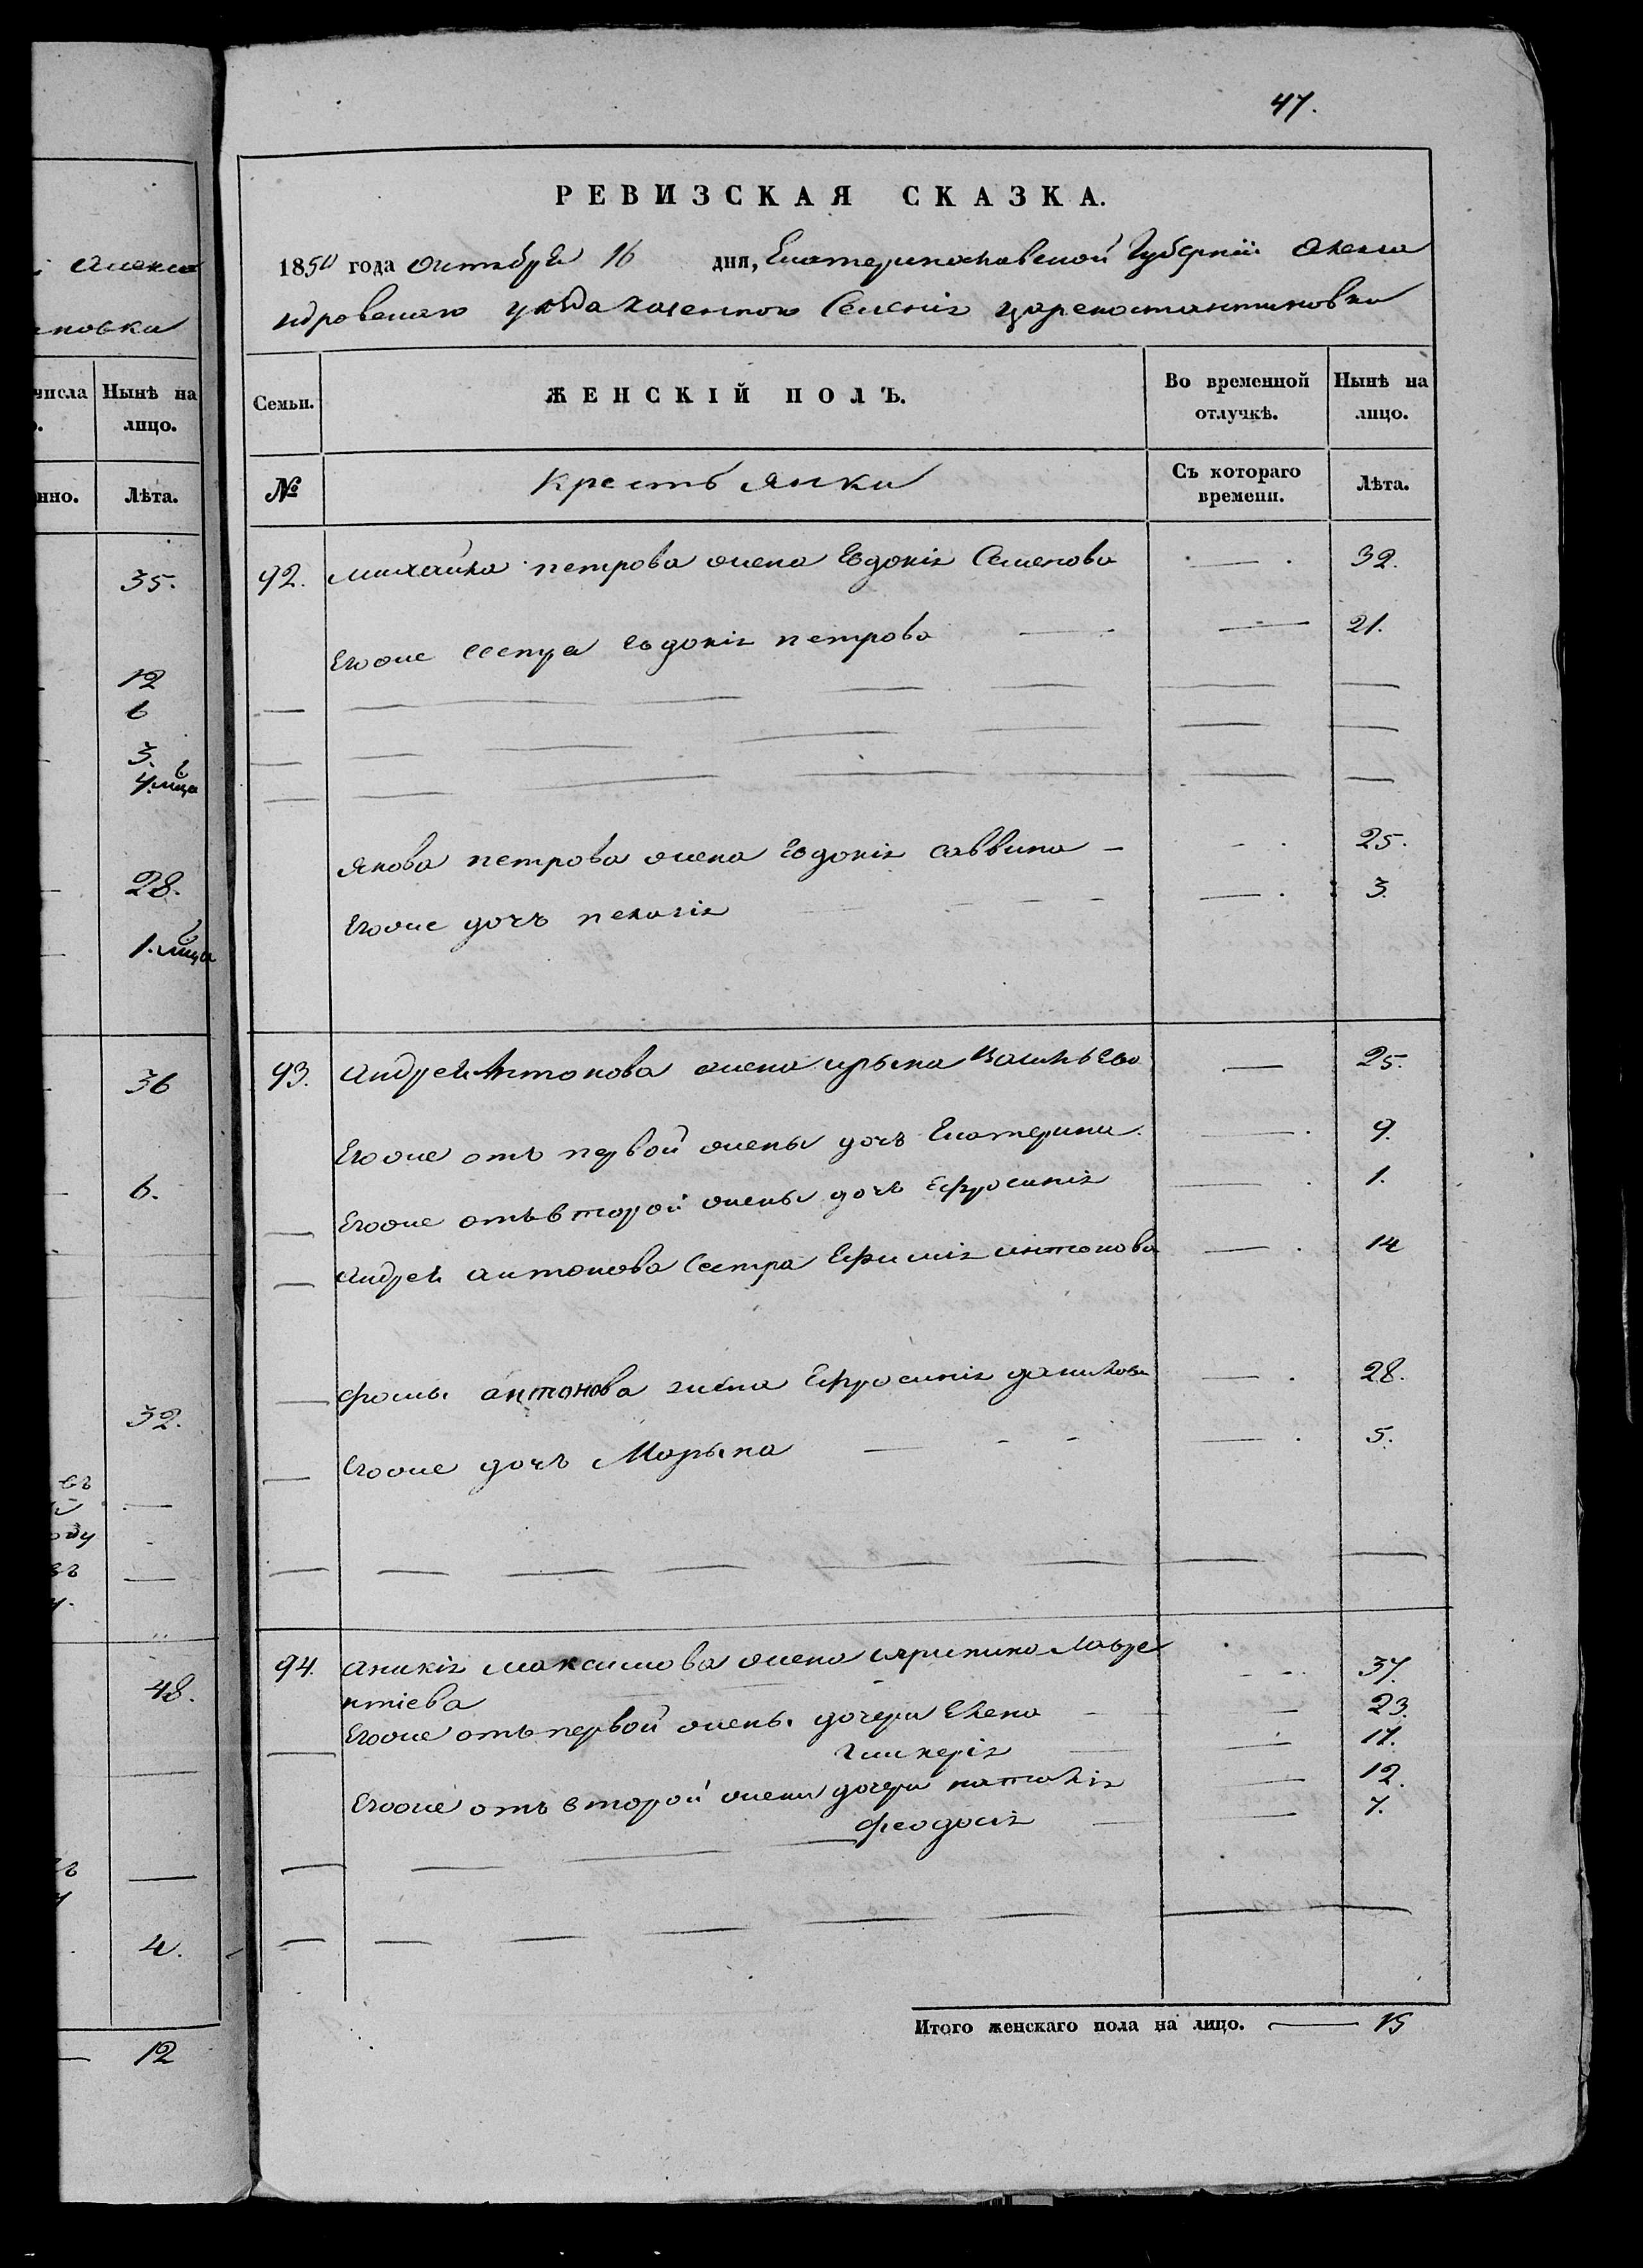 47.
РЕВИЗСКАЯ СКАЗКА.
1850 года октября 16 дня, Екатеринославской Губернiи Алекса
ндровскаго уѣзда казеннаго Селенiя Цареконстантиновки
Семьи.
ЖЕНСКIЙ ПОЛЪ.
Во временной отлучкѣ.
Нынѣ на лицо.
№
крестьянки
Съ котораго времени.
Лѣта.
92. михайла петрова жена Евдокiя Семенова 32.
Егоже сестра евдокiя петрова 21.
Якова петрова жена Евдокiя саввина 25.
Егоже дочь пелагiя 3.
93. Андрея Антонова жена ирына Васильева 25.
Егоже отъ первой жены дочь Екатерина 9.
Егоже отъ второй жены дочь Ефросинiя 1.
Андрея антонова сестра Ефимiя антонова 14
фомы антонова жена Ефросинiя данилова 28.
Егоже дочь Марына 5.
94. аникiя максимова жена ирипина Лавре
нтiева 37.
Егоже отъ первой жены дочери Елена 23.
гликерiя 17.
Егоже отъ второй жены дочери наталiя 12.
феодосiя 7.
Итого женскаго пола на лицо. 15
Алекса
новки
числа
Нынѣ на лицо.
нно.
Лѣта.
35.
12
6
3.
4. мца
28.
1. мца
36
6.
32.
въ
оду
въ
48.
4.
12